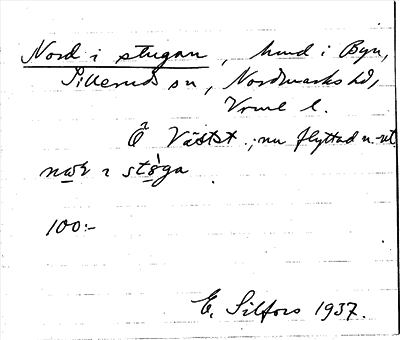 Nord i stugan, hmd i Byn,
Silleruds sn, Nordmarks hd,
Vrml l.
Ô Västst.; nu flyttad n. ut.
100:-
E. Silfors 1937.